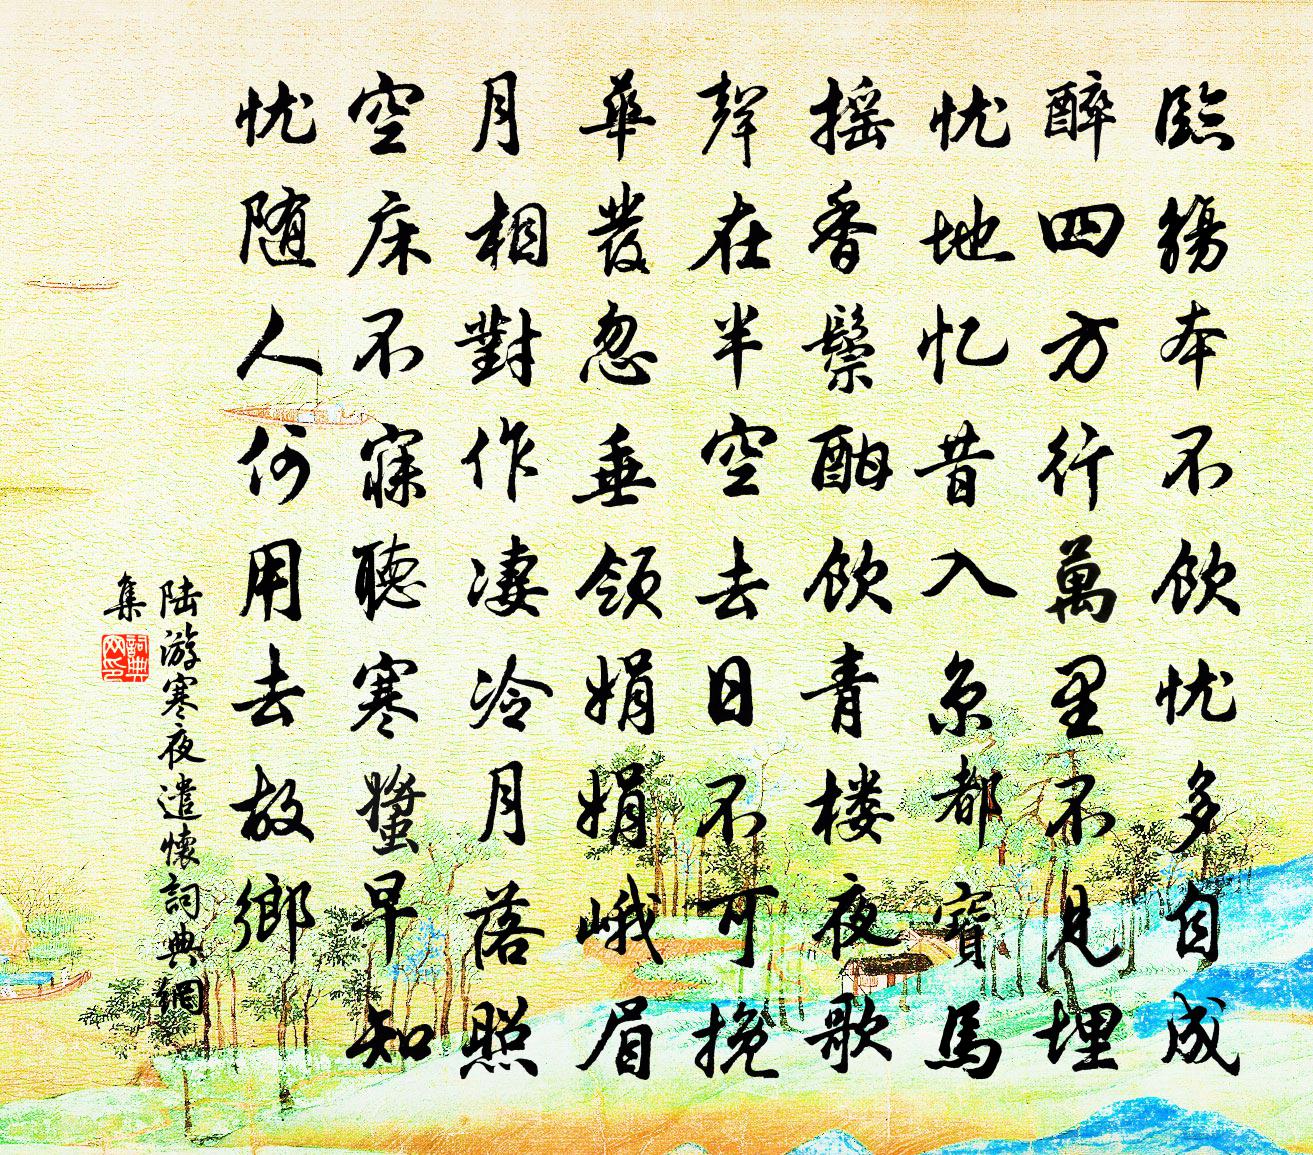 臨觴本不飲忧多自成
醉四方行萬里不見埋
忧地忆昔入京都寶馬
摇香鬃酣飲青楼夜歌
聲在半空去日不可挽
華發忽垂領娟娟峨眉
月相對作凄冷月落照
空床不寐聽寒螿早知
忧随人何用去故鄉
陆游寒夜遣懷詞典網
集
詞典
网印